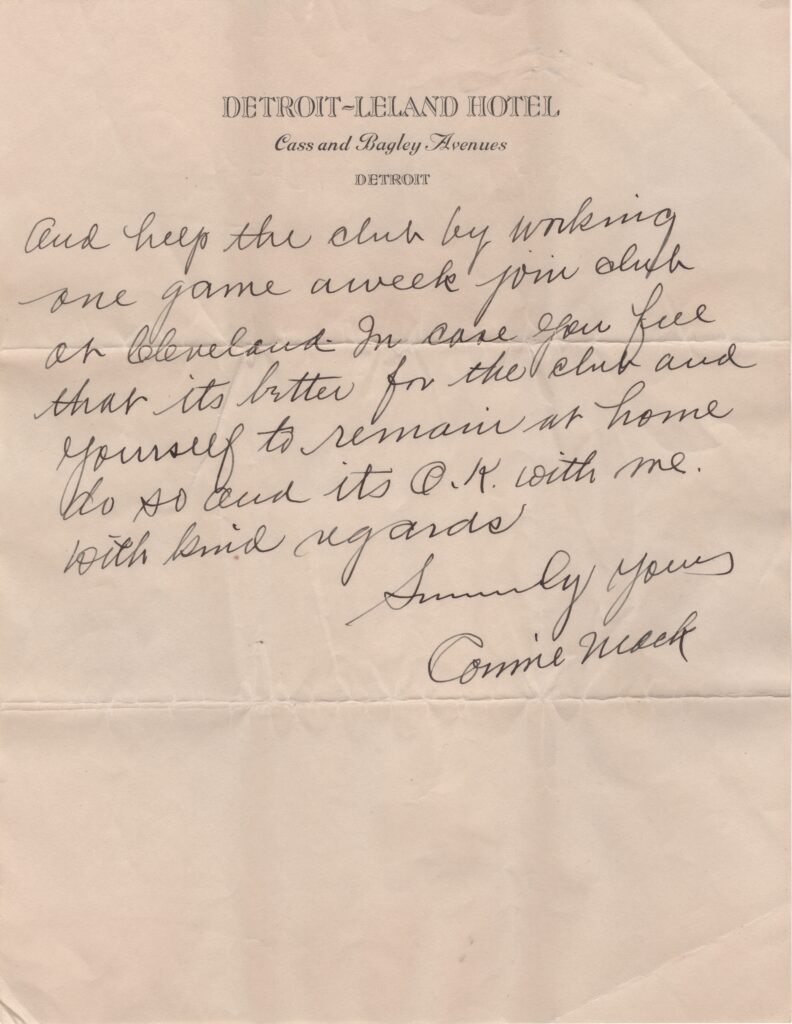 DETROIT-LELAND HOTEL
Cass and Bagley Avenues
DETROIT
And help the club by working
one game aweek join club
at Cleveland. In case you feel
that its better for the club and
yourself to remain at home
do so and its O.K. with me.
With kind regards
Sincerely yours
Connie Mack